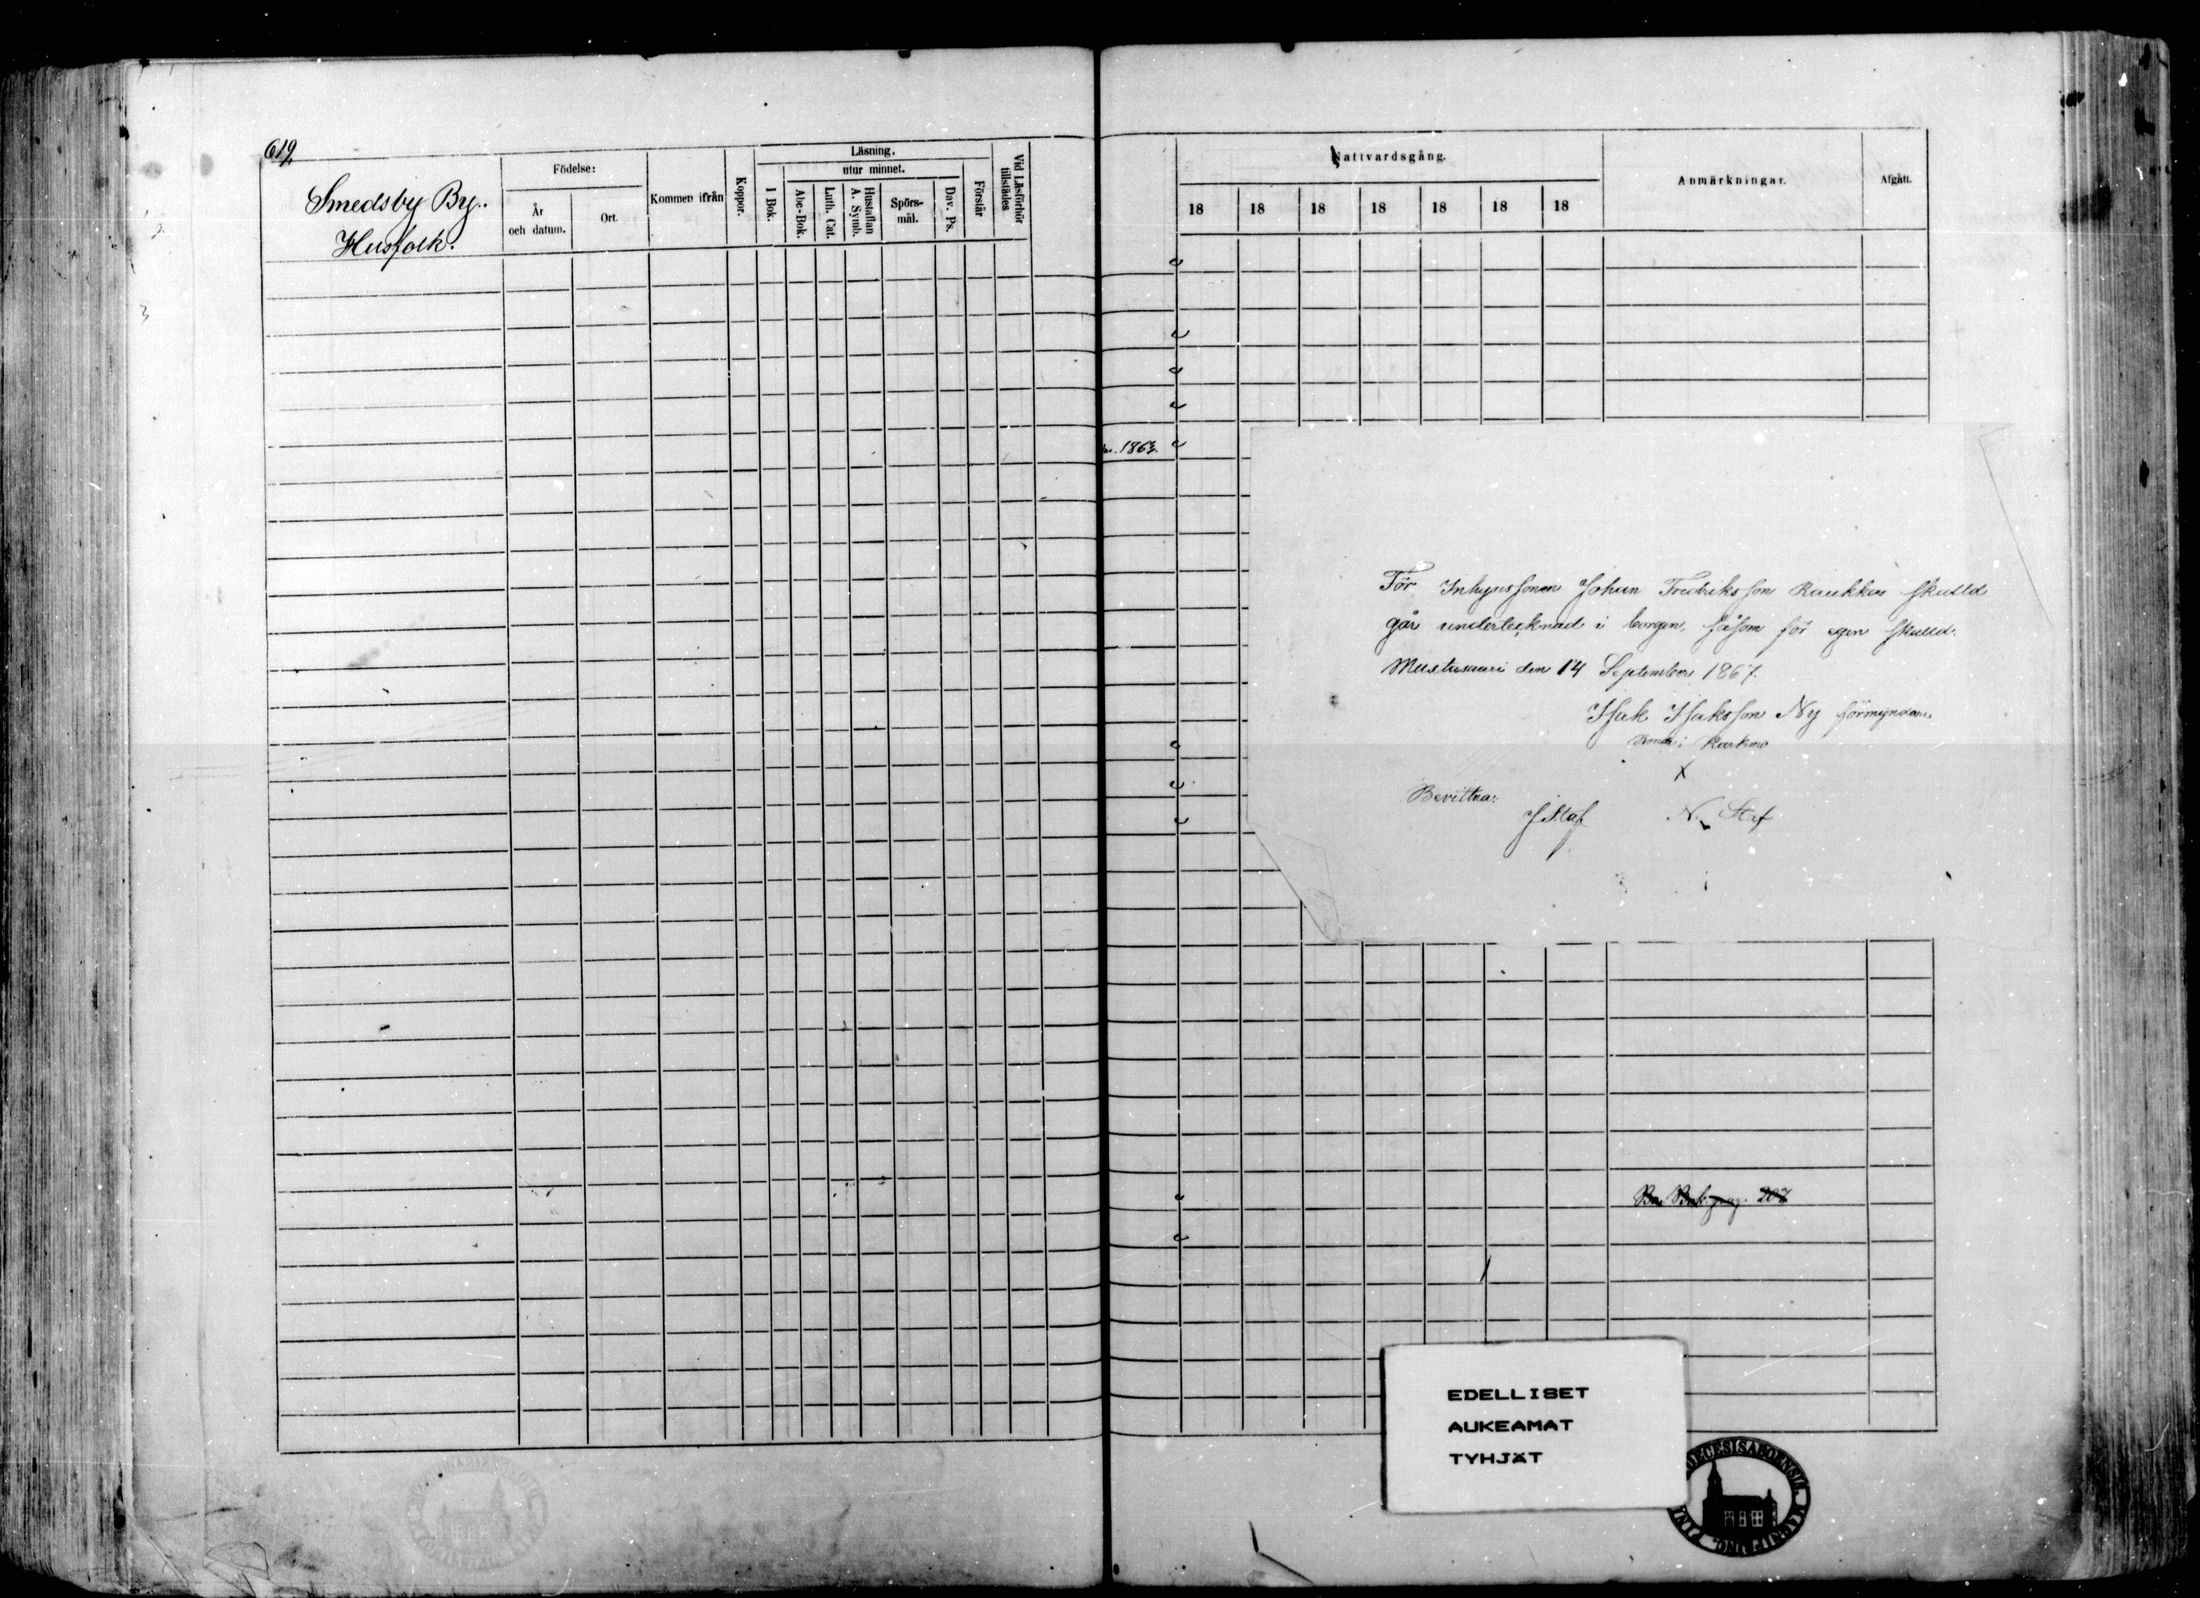 619.
Smedsby By.
Husfolk.
Födelse:
År och datum.
Ort.
Kommen ifrån
Koppor.
Läsning.
utur minnet.
I Bok.
Abc-Bok.
Luth. Cat.
Hustaflan A. Symb.
Spörsmål.
Dav. Ps.
Förstår
Vid Läsförhör tillstädes
Nattvardsgång.
18 18 18 18 18 18 18
Anmärkningar.
Afgått.
1863.
För Inhysessonen Johan Fredriksson Raukkas skulld
går undertecknad i borgen, såsom för egen skulld.
Mustasaari den 14 September 1867.
Isak Isaksson Ny förmyndare.
Bonde i Karkmo
X
Bevittna:
J Staf N. Staf
Bak pag. 207
EDELLISET
AUKEAMAT
TYHJÄT